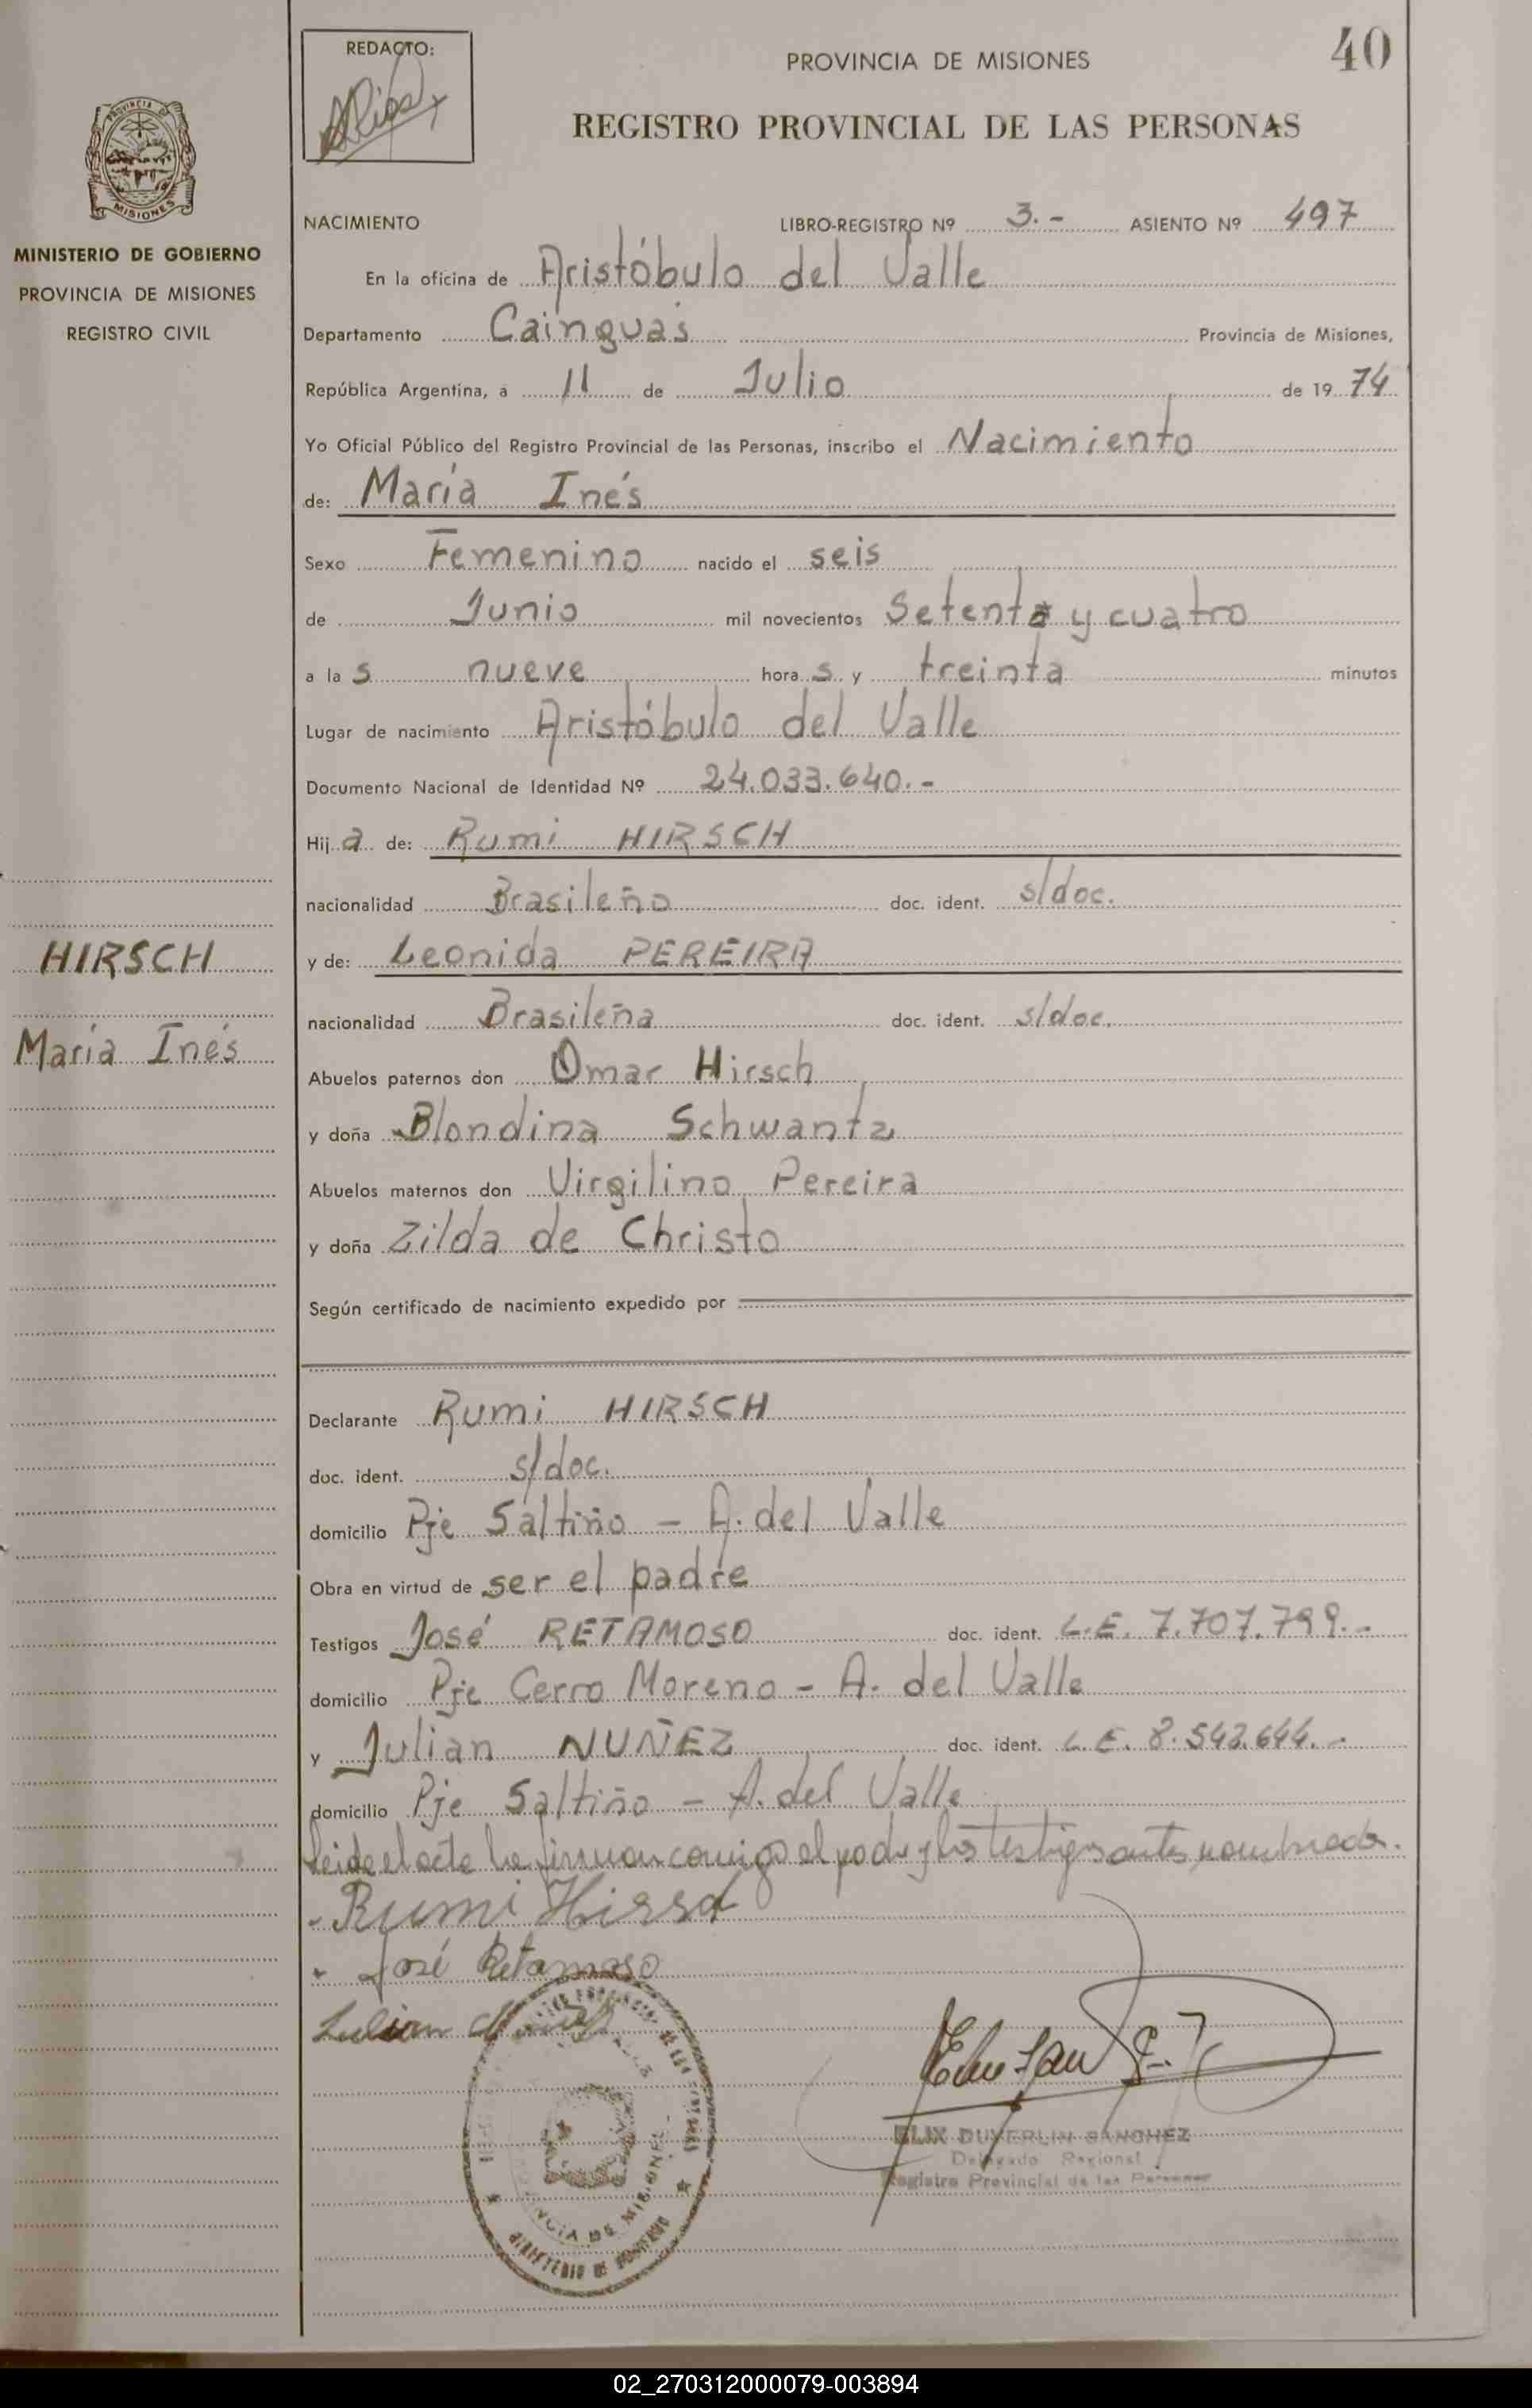 REDACTO:
PROVINCIA DE MISIONES
40
REGISTRO PROVINCIAL DE LAS PERSONAS
PROVINCIA
MISIONES
MINISTERIO DE GOBIERNO
PROVINCIA DE MISIONES
REGISTRO CIVIL
NACIMIENTO LIBRO-REGISTRO Nº 3.- ASIENTO Nº 497
En la oficina de Aristóbulo del Valle
Departamento Cainguás Provincia de Misiones,
República Argentina, a 11 de Julio de 1974
Yo Oficial Público del Registro Provincial de las Personas, inscribo el Nacimiento
de: María Inés
Sexo Femenino nacido el seis
de Junio mil novecientos Setenta y cuatro
a las nueve horas y treinta minutos
Lugar de nacimiento Aristóbulo del Valle
Documento Nacional de Identidad Nº 24.033.640.-
Hija de: Rumi HIRSCH
nacionalidad Brasileño doc. ident. s/doc.
HIRSCH
y de: Leonida PEREIRA
nacionalidad Brasileña doc. ident. s/doc.
María Inés
Abuelos paternos don Omar Hirsch
y doña Blondina Schwantz
Abuelos maternos don Virgilino Pereira
y doña Zilda de Christo
Según certificado de nacimiento expedido por
Declarante Rumi HIRSCH
doc. ident. s/doc.
domicilio Pje Saltiño - A. del Valle
Obra en virtud de ser el padre
Testigos José RETAMOSO doc. ident. L.E. 7.707.799.-
domicilio Pje Cerro Moreno - A. del Valle
y Julian NUÑEZ doc. ident. L.E. 8.542.644.-
domicilio Pje Saltiño - A. del Valle
Leida el acta la firman conmigo el padre y los testigos antes nombrados.
Rumi Hirsch
José Retamoso
Julian
ELIX DUVERLIN SANCHEZ
Delegado Regional
Registro Provincial de las Personas
PROVINCIA DE MISIONES
MINISTERIO DE GOBIERNO
02_270312000079-003894